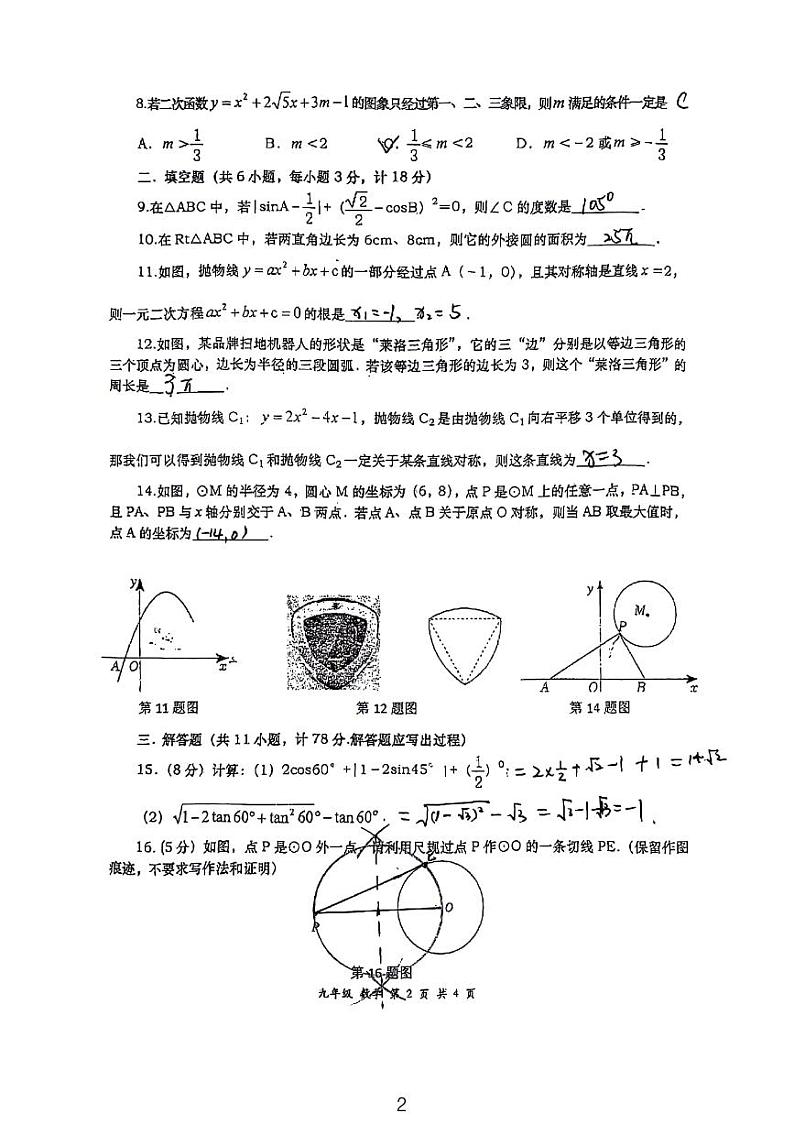 8.若二次函数 y = x² + 2√5x + 3m − 1 的图象只经过第一、二、三象限，则 m 满足的条件一定是 C
A. m > 1/3 B. m < 2 C. 1/3 ⩽ m < 2 D. m < − 2 或 m ⩾ − 1/3
二．填空题（共 6 小题，每小题 3 分，计 18 分）
9.在△ABC 中，若|sinA − 1/2| + (√2/2 − cosB)²=0，则∠C 的度数是 105°．
10.在 Rt△ABC 中，若两直角边长为 6cm、8cm，则它的外接圆的面积为 25π．
11.如图，抛物线 y = ax² + bx + c 的一部分经过点 A（－1，0），且其对称轴是直线 x =2，
则一元二次方程 ax² + bx + c = 0 的根是 x₁=-1, x₂=5．
12.如图，某品牌扫地机器人的形状是“莱洛三角形”，它的三“边”分别是以等边三角形的
三个顶点为圆心，边长为半径的三段圆弧．若该等边三角形的边长为 3，则这个“莱洛三角形”的
周长是 3π．
13.已知抛物线 C₁： y = 2x² − 4x − 1，抛物线 C₂ 是由抛物线 C₁ 向右平移 3 个单位得到的，
那我们可以得到抛物线 C₁ 和抛物线 C₂ 一定关于某条直线对称，则这条直线为 x=3．
14.如图，⊙M 的半径为 4，圆心 M 的坐标为（6，8），点 P 是⊙M 上的任意一点，PA⊥PB，
且 PA、PB 与 x 轴分别交于 A、B 两点．若点 A、点 B 关于原点 O 对称，则当 AB 取最大值时，
点 A 的坐标为 (-14,0)．
y
A O x
y
M
P
A O B x
第 11 题图 第 12 题图 第 14 题图
三．解答题（共 11 小题，计 78 分.解答题应写出过程）
15.（8 分）计算：（1）2cos60° +|1－2sin45° |+ (1/2)⁰; = 2×1/2 + √2-1 + 1 = 1+√2
（2）√(1−2tan60°+tan²60°)−tan60°． = √((1-√3)²) - √3 = √3-1-√3=-1.
16.（5 分）如图，点 P 是⊙O 外一点，请利用尺规过点 P 作⊙O 的一条切线 PE.（保留作图
痕迹，不要求写作法和证明）
E
P O
第 16 题图
九年级 数学 第 2 页 共 4 页
2